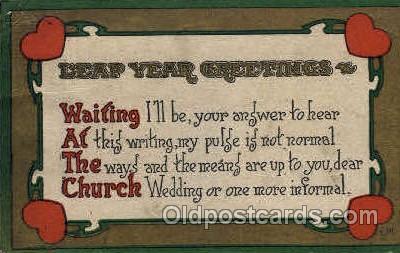 LEAP YEAR GREETINGS
Waiting I'll be, your answer to hear
At this writing, my pulse is not normal
The ways and the means are up to you, dear
Church Wedding or one more informal.
Oldpostcards.com